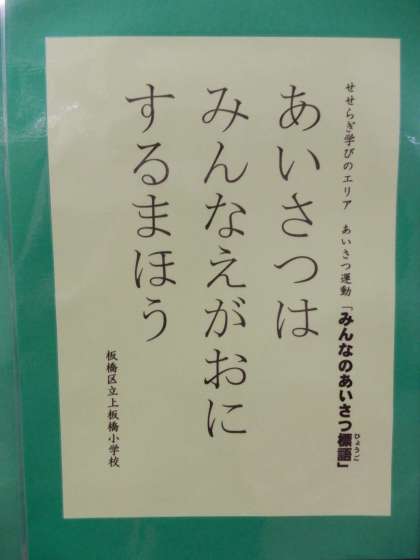 せせらぎ学びのエリア　あいさつ運動「みんなのあいさつ標語」
ひょうご
あいさつは
みんなえがおに
するまほう
板橋区立上板橋小学校